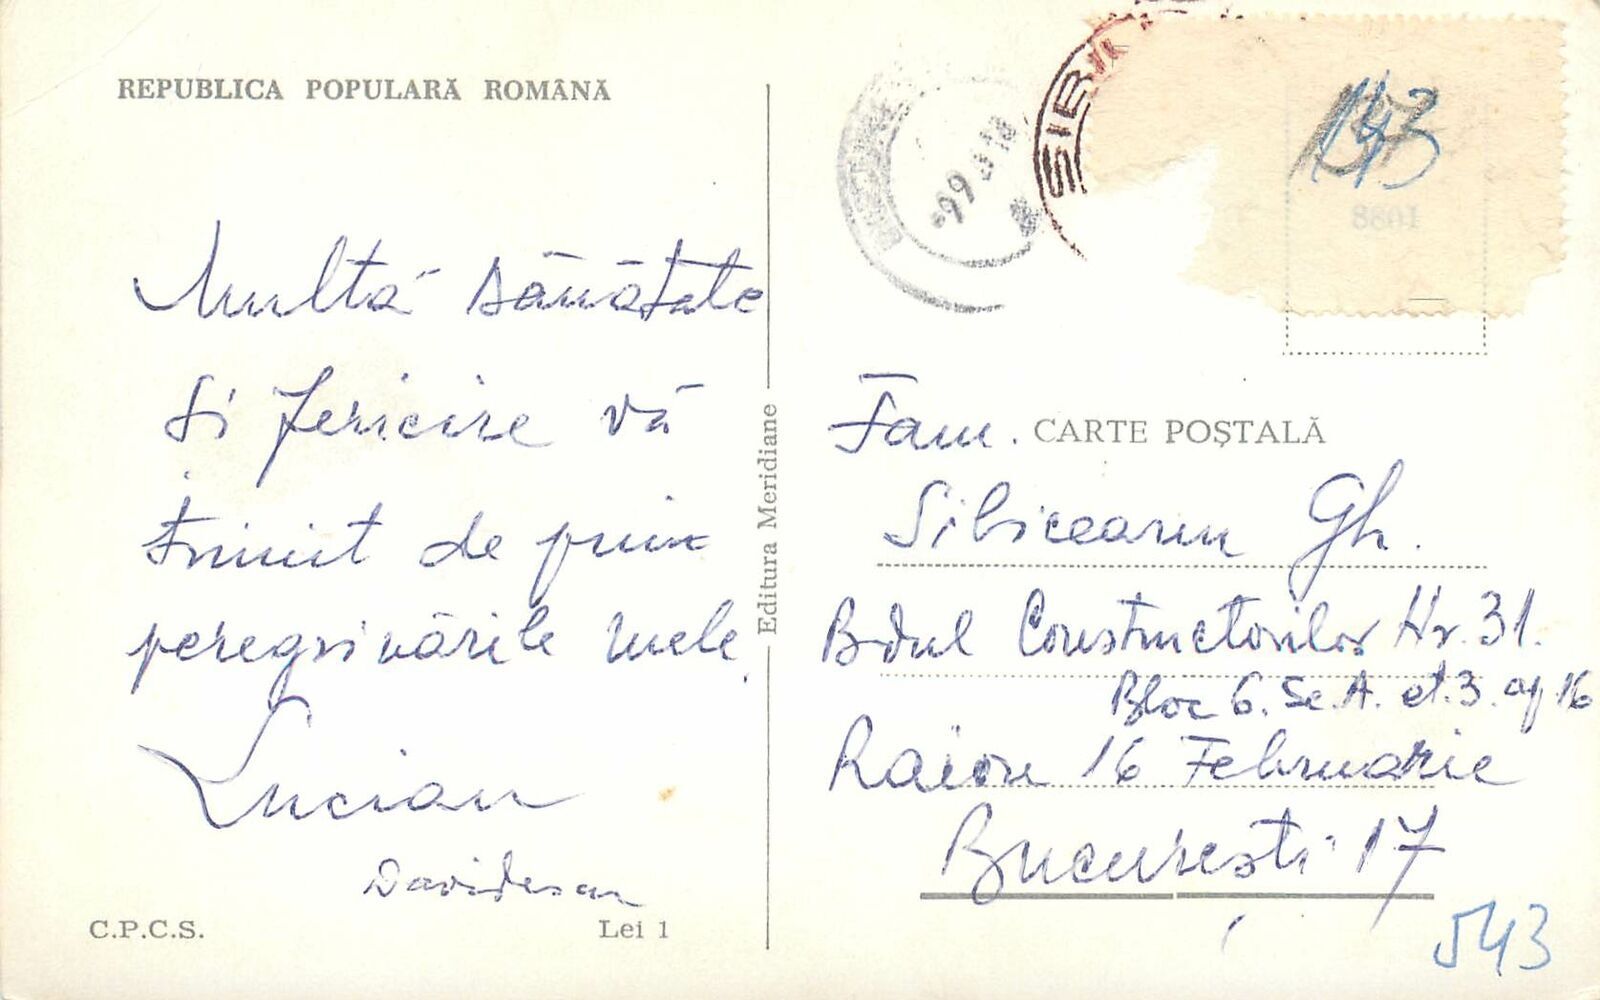 REPUBLICA POPULARĂ ROMÂNĂ
Multă sănătate
și fericire vă
trimit de prin
peregrinările mele.
Lucian
Davidescu
C.P.C.S.
Lei 1
Editura Meridiane
SIBIU
143
1088
CARTE POȘTALĂ
Fam.
Sibiceanu Gh.
Bdul Constructorilor Nr. 31.
Bloc 6. Sc. A. et. 3. ap 16
Raion 16 Februarie
București 17
543